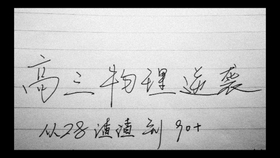 高三物理逆袭
从28渣渣到90+